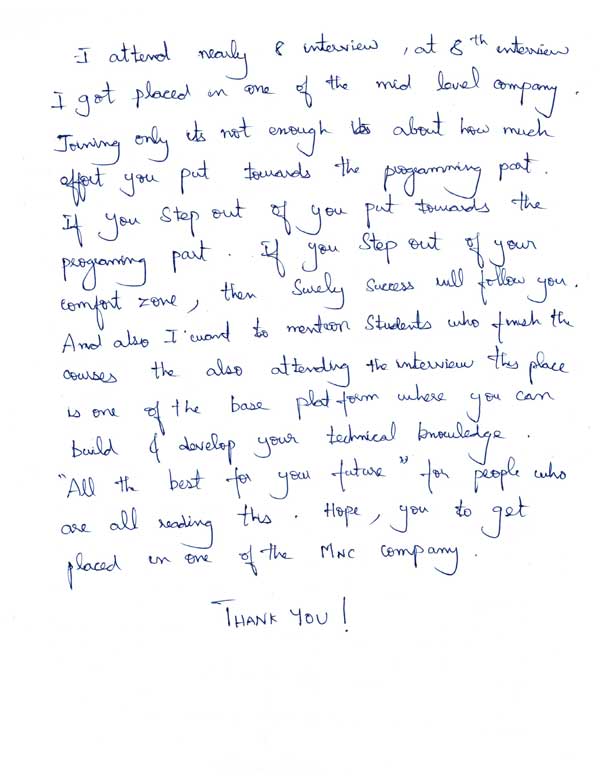 I attend nearly 8 interview, at 8th interview
I got placed in one of the mid level company.
Joining only its not enough its about how much
effort you put towards the programming part.
If you step out of you put towards the
programing part. If you step out of your
comfort zone, then surely success will follow you.
And also I want to mention students who finish the
courses the also attending the interview this place
is one of the base plat form where you can
build & develop your technical knowledge.
"All the best for your future" for people who
are all reading this. Hope, you to get
placed in one of the MNC company.
THANK YOU!